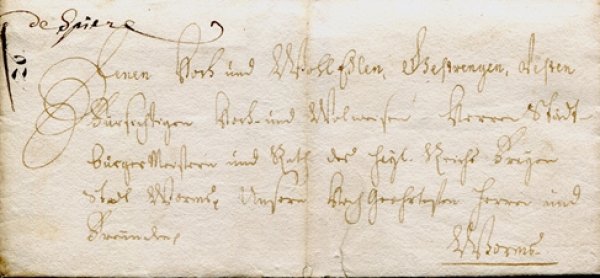 de Spiere
Denen Hoch und Wohl Edlen, Gestrengen, Vesten
Fürsichtigen Hoch- und Wolweisen Herren Stätt-
bürger Meistern und Rath des Heyl. Reichs Freyen
Statt Worms, Unsern Hoch Geehrtesten Herren und
Freünden,
Worms